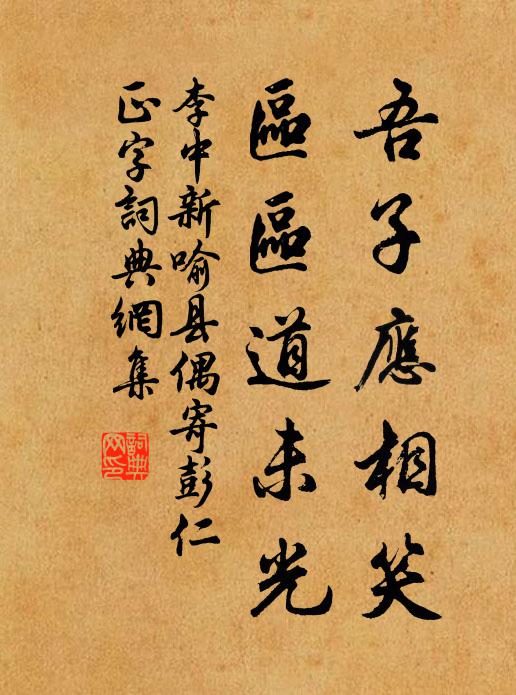 吾子應相笑
區區道未光
李中新喻县偶寄彭仁
正字詞典網集
詞典
网印